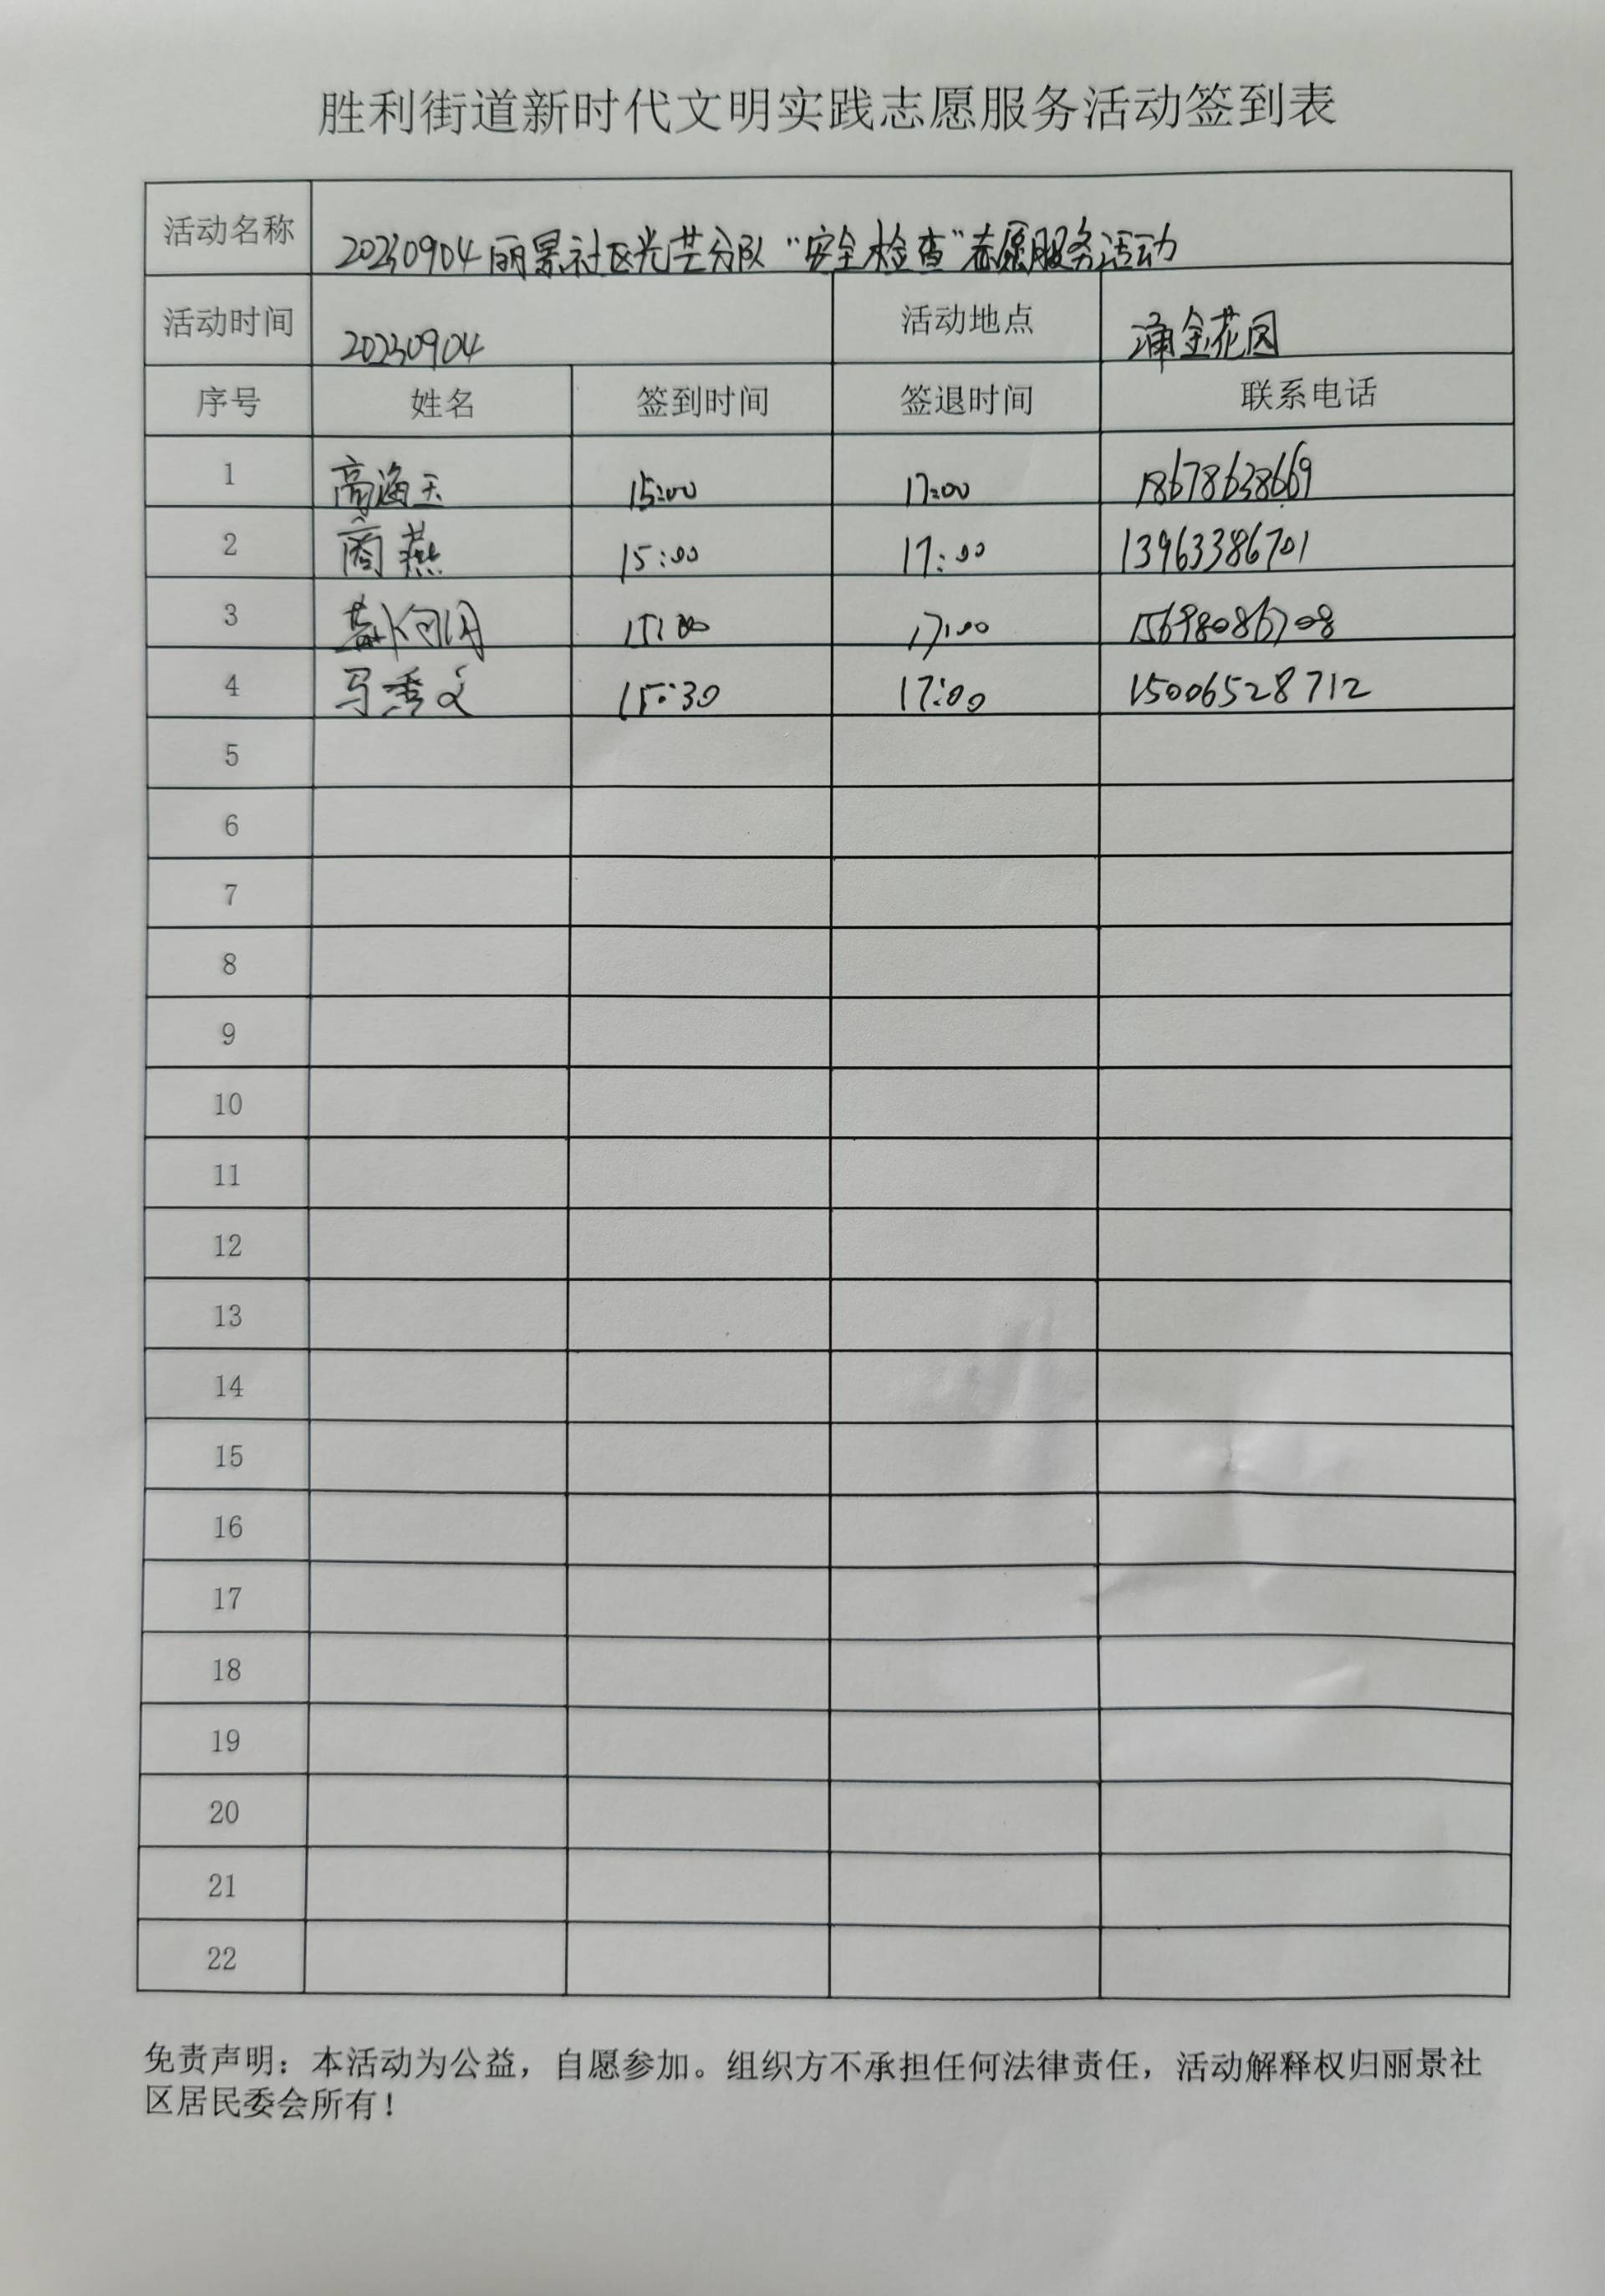 胜利街道新时代文明实践志愿服务活动签到表
活动名称 20230904丽景社区光芒分队“安全检查”志愿服务活动
活动时间 20230904 活动地点 涌金花园
序号 姓名 签到时间 签退时间 联系电话
1 高海玉 15:00 17:00 18678638669
2 商燕 15:00 17:00 13963386701
3 15:00 17:00 15698086708
4 马秀文 15:30 17:00 15006528712
5
6
7
8
9
10
11
12
13
14
15
16
17
18
19
20
21
22
免责声明：本活动为公益，自愿参加。组织方不承担任何法律责任，活动解释权归丽景社
区居民委会所有！